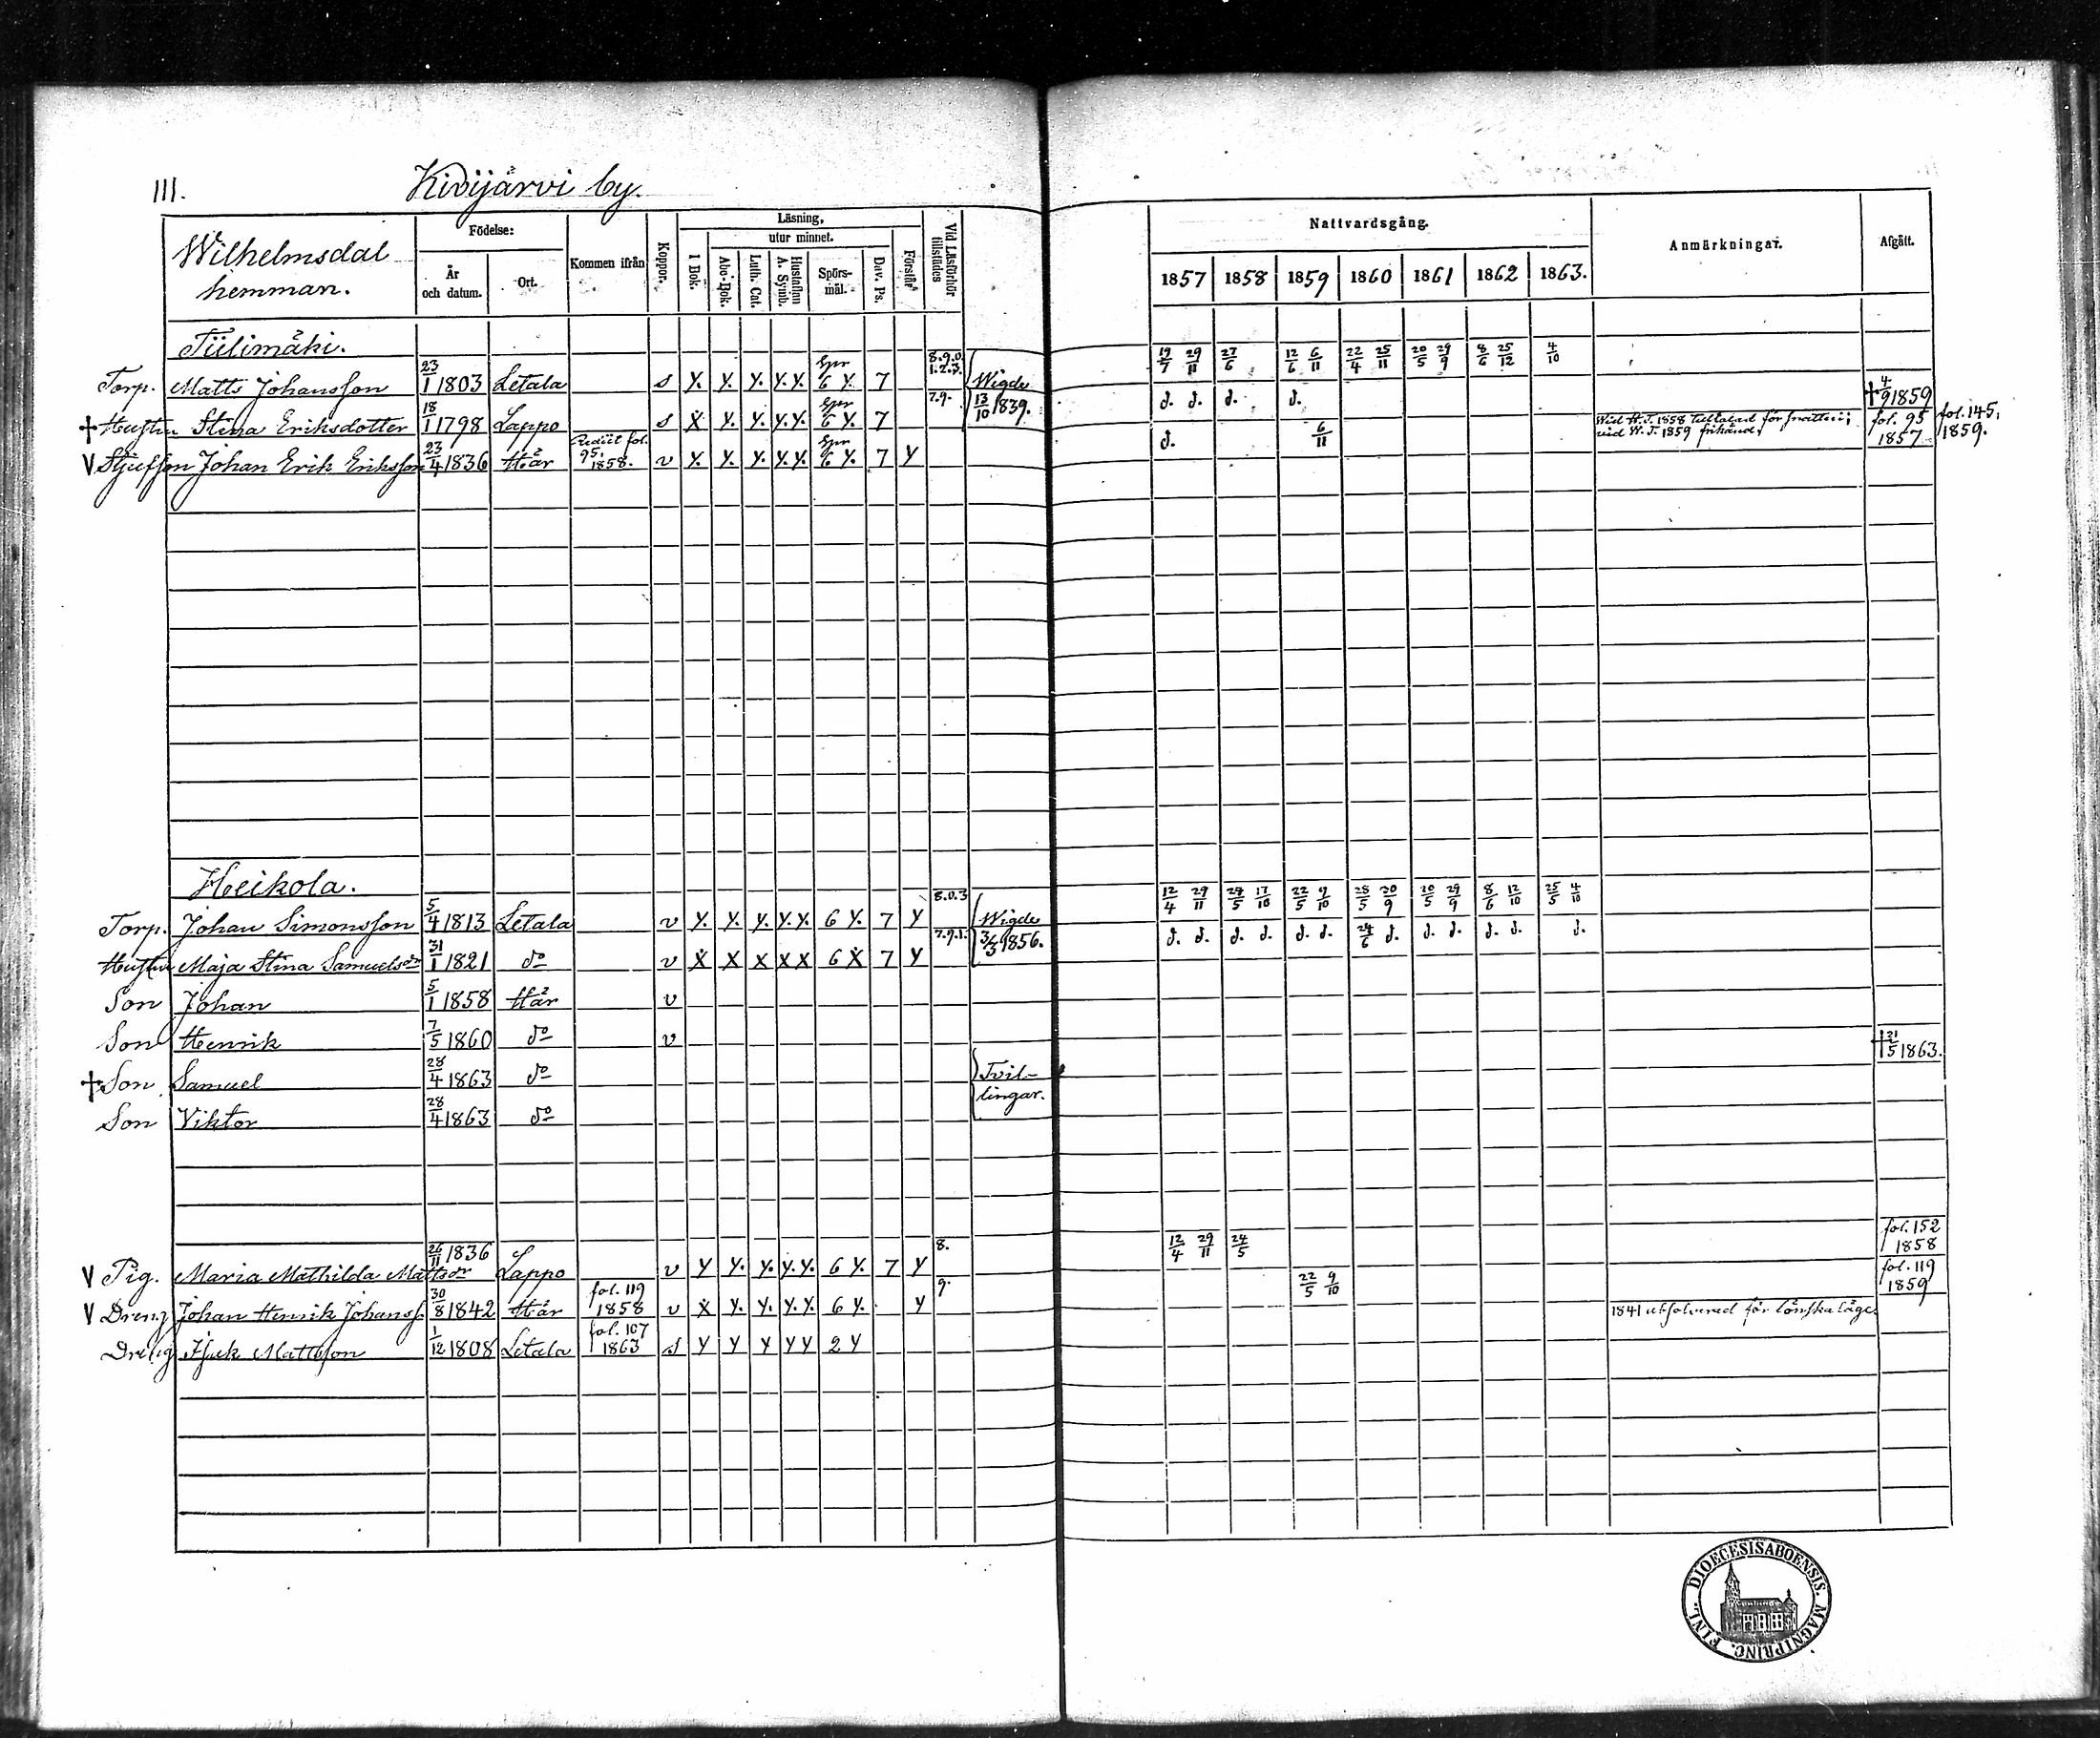 111. Kivijärvi by.
Wilhelmsdal hemman. Födelse: År och datum. Ort. Kommen ifrån Koppor. Läsning, I Bok. utur minnet. Abc-Bok. Luth. Cat. Hustaflan A. Symb. Spörsmål. Dav. Ps. Förstår Vid Läsförhör tillstädes Nattvardsgång. 1857 1858 1859 1860 1861 1862 1863. Anmärkningar. Afgått.
Tiilimäki.
Torp. Matts Johansson 23/1 1803 Letala s y. y. y. y. y. Spr 6 y. 7 8.9.0. 1.2.3. Wigde 13/10 1839. 19/7 29/11 27/6 12/6 6/11 22/4 25/11 20/5 29/9 8/6 25/12 4/10
† Hustru Stina Eriksdotter 18/1 1798 Lappo s x y. y. y. y. Spr 6 y. 7 7.9. d. d. d. d. † 4/9 1859
V Stjufson Johan Erik Eriksson 23/4 1836 Här Rediit fol. 95, 1858. v y. y. y. y. y. Spr 6 y. 7 y d. 6/11 Wid W. T. 1858 tilltalad för snatteri; vid W. T. 1859 frikänd. fol. 95 1857 fol. 145, 1859.
Heikola.
Torp. Johan Simonsson 5/4 1813 Letala v y. y. y. y. y. 6 y. 7 y 8.0.3 Wigde 3/3 1856. 12/4 29/11 24/5 17/10 22/5 9/10 28/5 20/9 20/5 29/9 8/6 12/10 25/5 4/10
Hustru Maja Stina Samuelsdr 31/1 1821 do v x x x x x 6 x 7 y 7.9.1. d. d. d. d. d. d. 24/6 d. d. d. d. d. d.
Son Johan 5/1 1858 Här v
Son Henrik 7/5 1860 do v
† Son Samuel 28/4 1863 do Tvillingar. † 21/5 1863.
Son Viktor 28/4 1863 do
V Pig. Maria Mathilda Mattsdr 26/11 1836 Lappo v y y. y. y. y. 6 y. 7 y 8. 12/4 29/11 24/5 fol. 152 1858
V Dreng Johan Henrik Johanss. 30/8 1842 Här fol. 119 1858 v x y. y. y. y. 6 y. y 9. 22/5 9/10 fol. 119 1859
Dreng Isak Mattsson 1/12 1808 Letala fol. 107 1863 s y y y y y 2 y 1841 absolverad för lönskaläge.
DIOECESIS ABOENSIS. MAGNI PRINC. FINL.